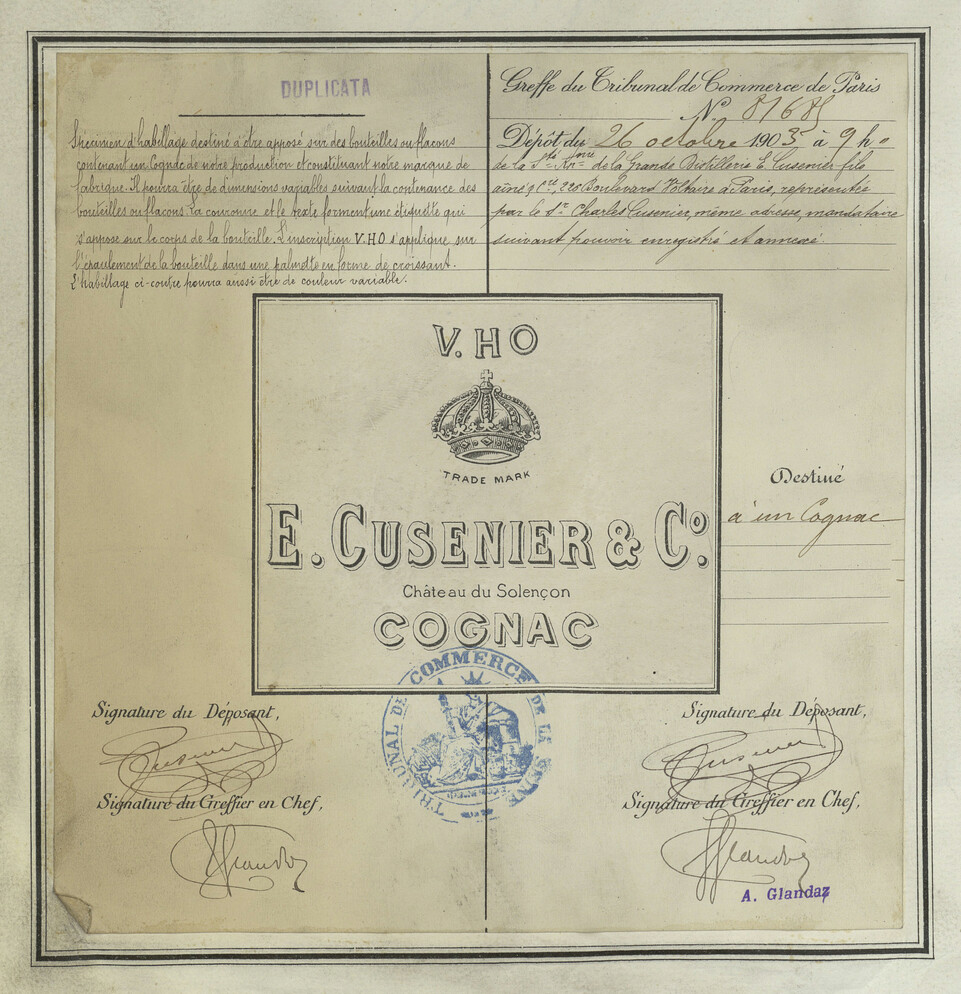 DUPLICATA
Spécimen d'habillage destiné à être apposé sur des bouteilles ou flacons
contenant un Cognac de notre production et constituant notre marque de
fabrique. Il pourra être de dimensions variables suivant la contenance des
bouteilles ou flacons. La couronne et le texte forment une étiquette qui
s'appose sur le corps de la bouteille. L'inscription V.HO s'applique sur
l'épaulement de la bouteille dans une palmette en forme de croissant.
L'habillage ci-contre pourra aussi être de couleur variable.
Greffe du Tribunal de Commerce de Paris
N° 81685
Dépôt du 26 octobre 1903 à 9 h
de la Sté Anme de la Grande Distillerie E. Cusenier fils
aîné & Cie, 226 Boulevard Voltaire à Paris, représentée
par le Sr Charles Cusenier, même adresse, mandataire
suivant pouvoir enregistré et annexé.
V.HO
TRADE MARK
E. CUSENIER & Co.
Château du Solençon
COGNAC
Destiné
à un Cognac
TRIBUNAL DE COMMERCE DE LA SEINE
Signature du Déposant,
Cusenier
Signature du Greffier en Chef,
Glandaz
Signature du Déposant,
Cusenier
Signature du Greffier en Chef,
Glandaz
A. Glandaz